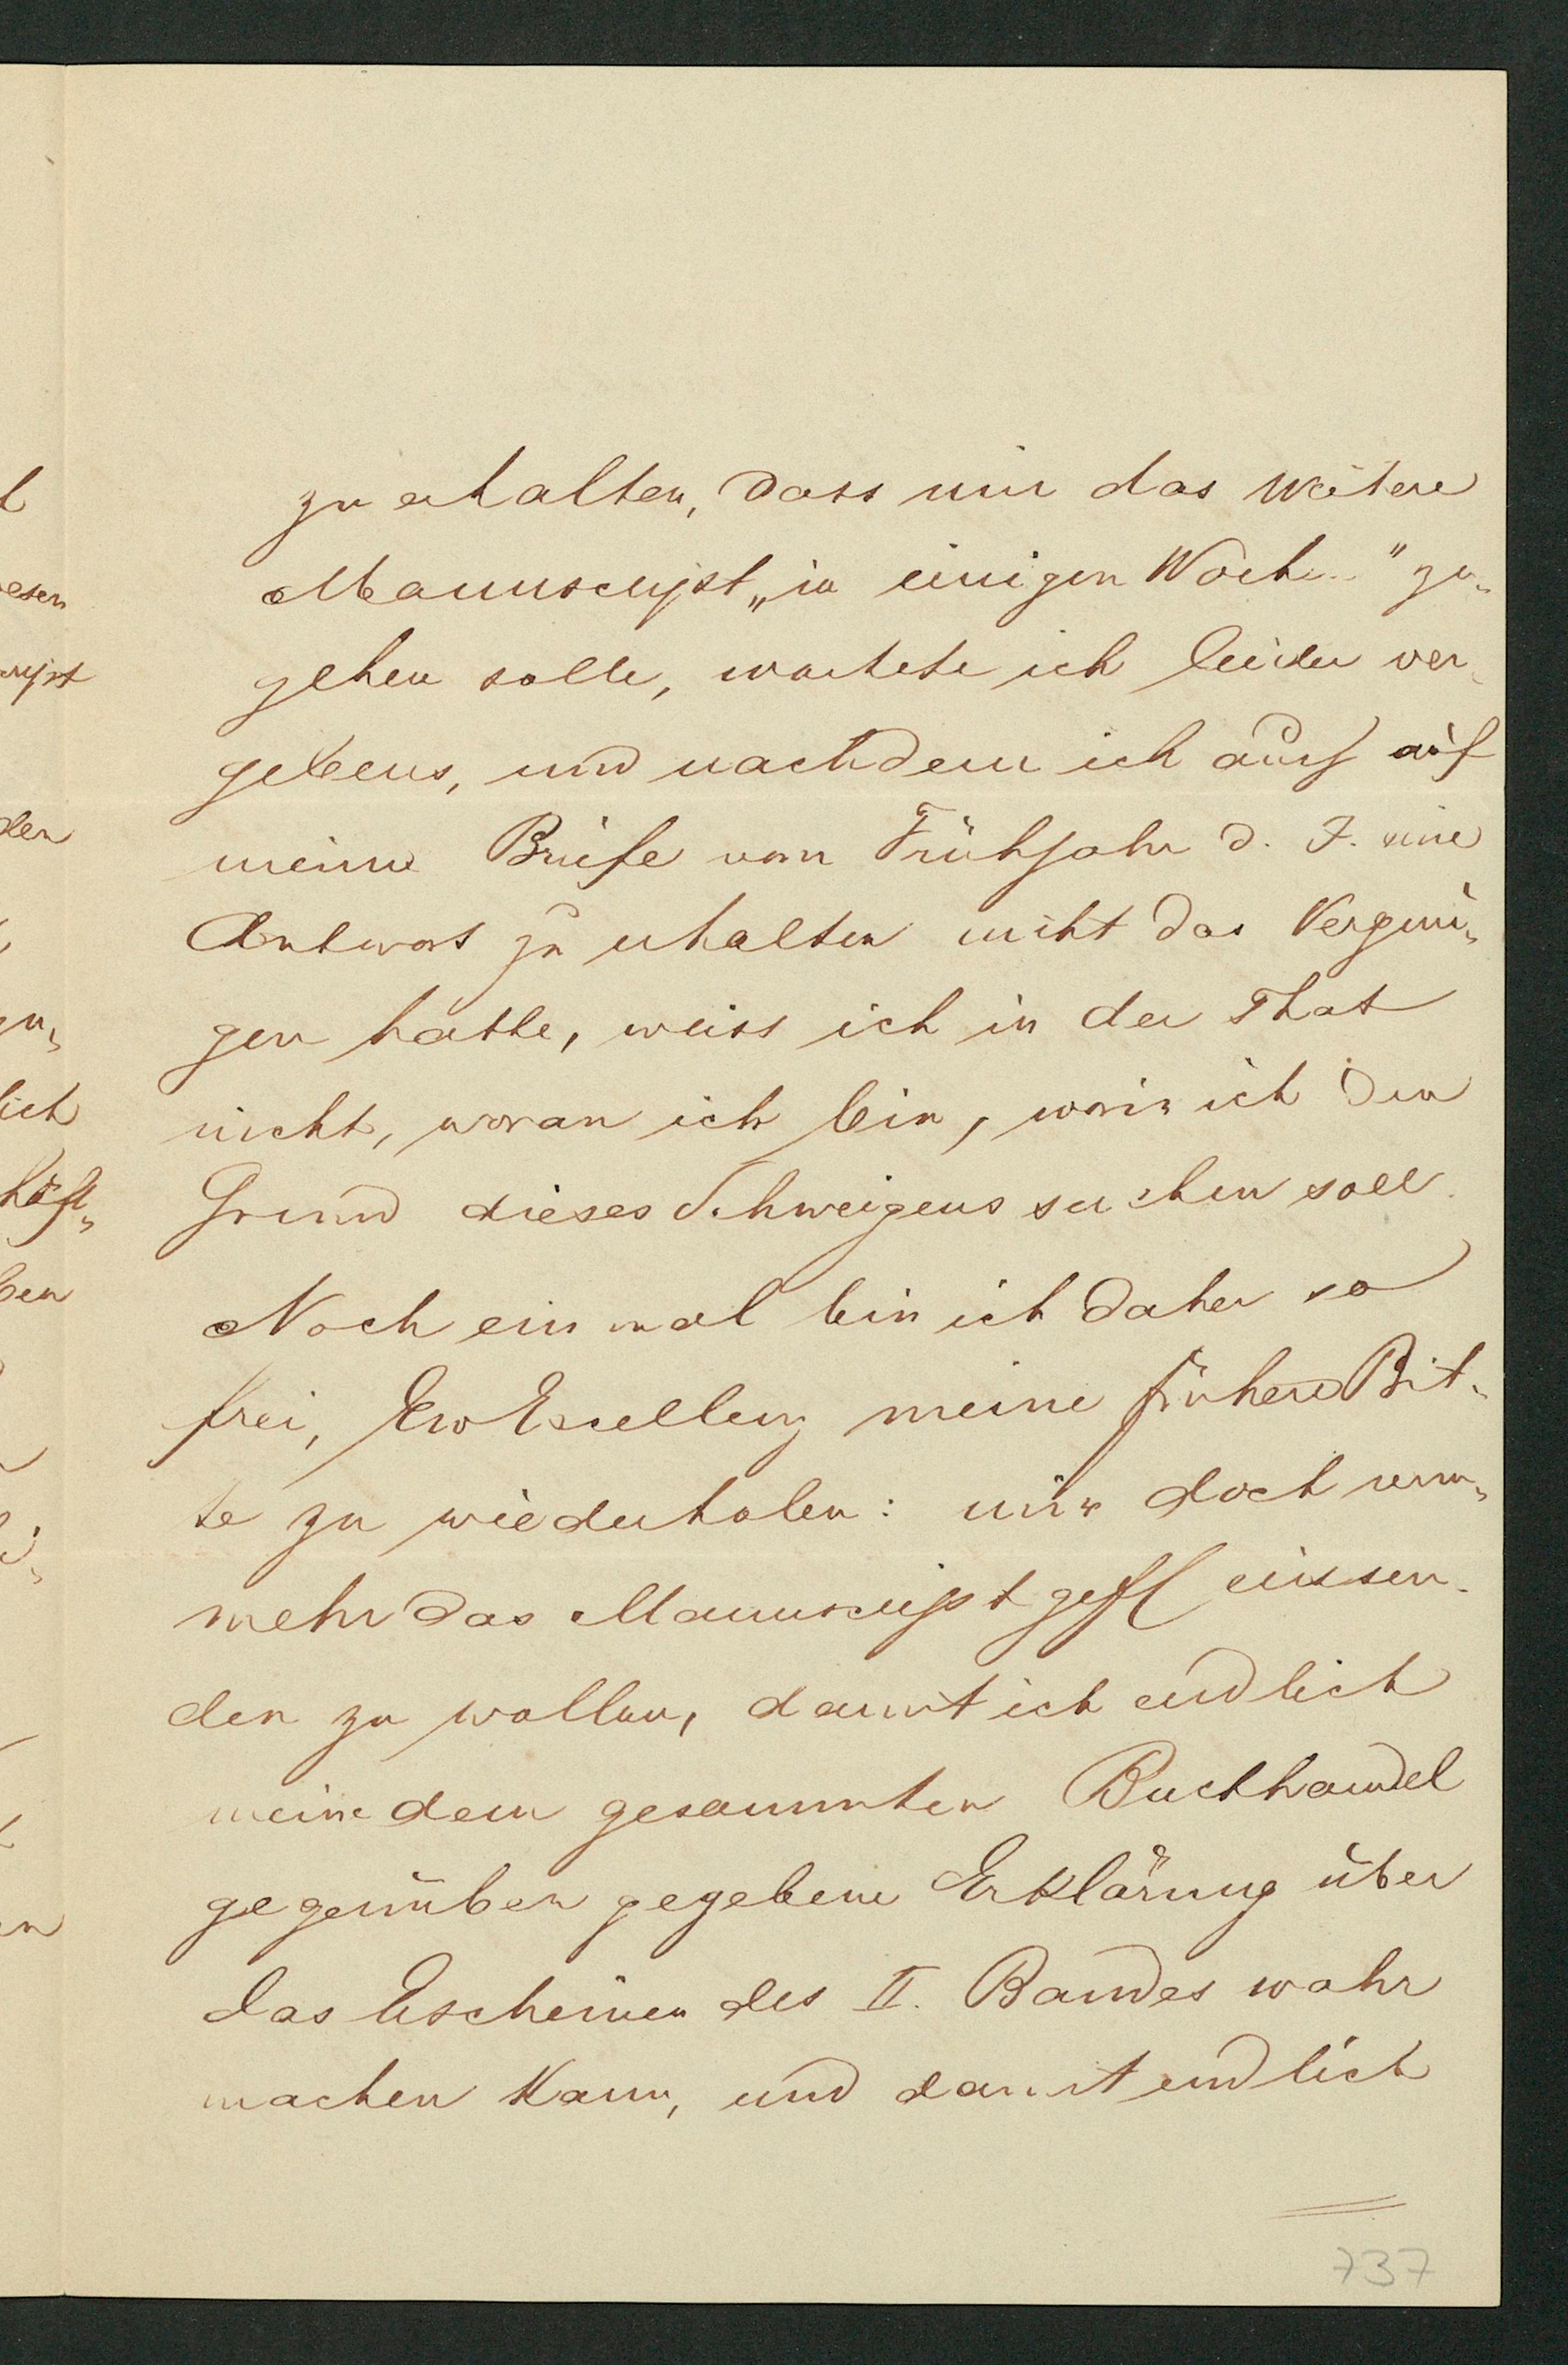 zu erhalten, dass mir das weitere
Manuscript „in einigen Woch..." zu-
gehen solle, wartete ich leider ver-
gebens, und nachdem ich auch auf
meine Briefe vom Frühjahr d. J. eine
Antwort zu erhalten nicht das Vergnü-
gen hatte, weiss ich in der That
nicht, woran ich bin, worin ich den
Grund dieses Schweigens suchen soll.
Noch einmal bin ich daher so
frei, Ew Excellenz meine frühere Bit-
te zu wiederholen: mir doch nun-
mehr das Manuscript gefl einsen-
den zu wollen, damit ich endlich
meine dem gesammten Buchhandel
gegenüber gegebene Erklärung über
das Erscheinen des II. Bandes wahr
machen kann, und damit endlich
737